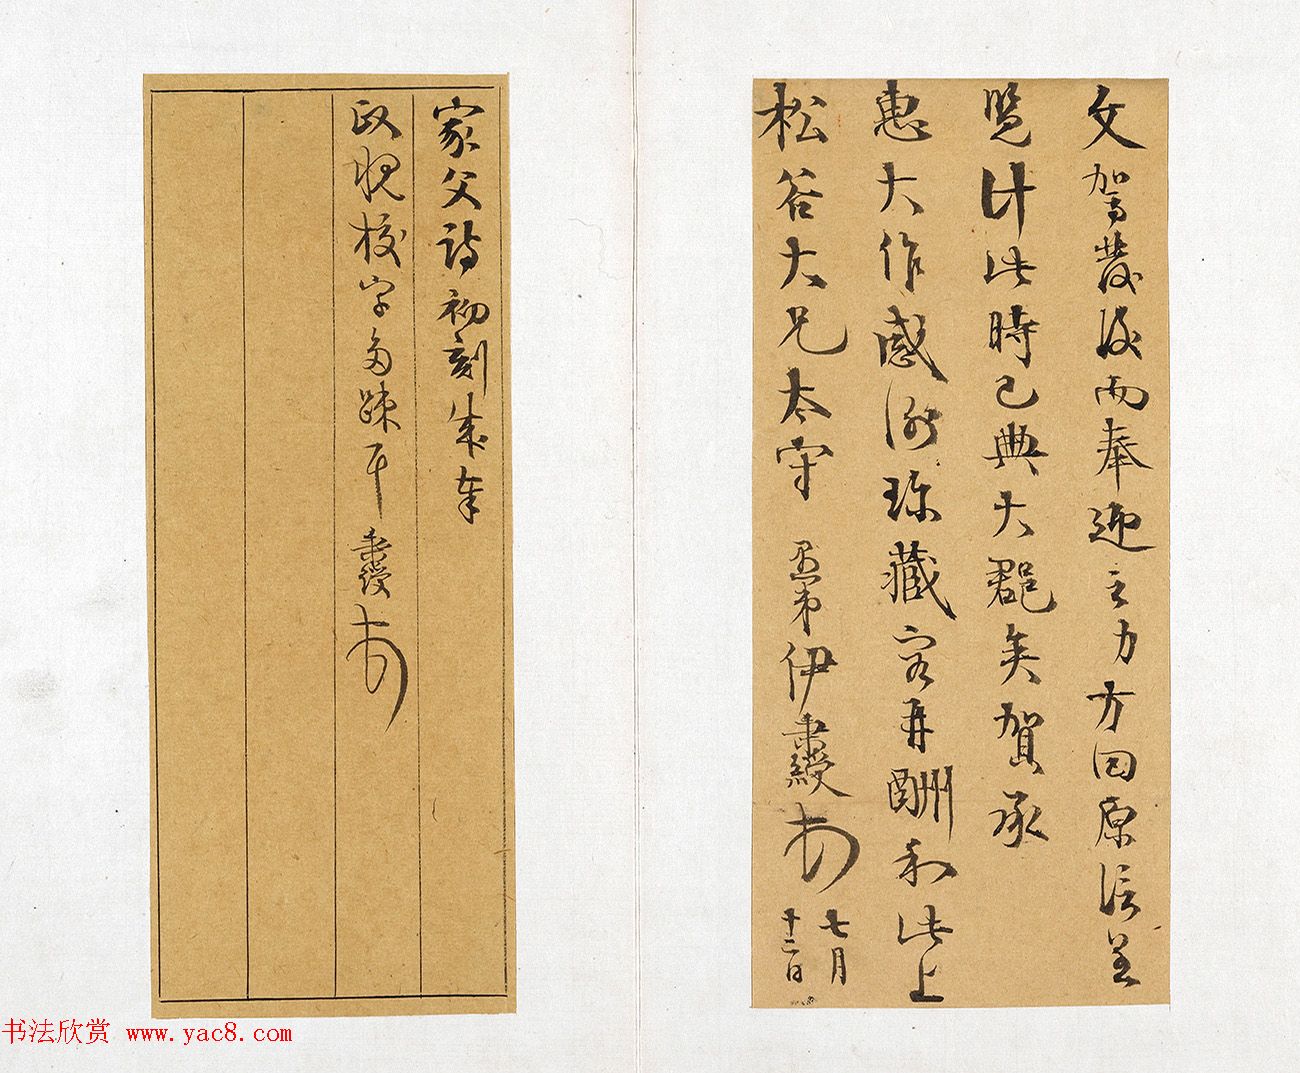 文駕發後而奉迎之力方回原信呈
覽計此時已典大郡矣賀承
惠大作感謝珍藏容再酬和此上
松谷大兄太守 愚弟伊秉綬
七月
十二日
家父詩初刻成奉
政 校字多疎耳 秉綬
书法欣赏 www.yac8.com